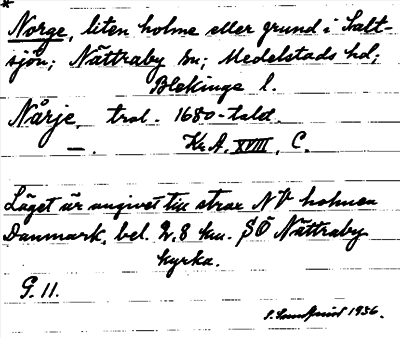 *
Norge, liten holme eller grund i Salt-
sjön; Nättraby sn; Medelstads hd;
Blekinge l.
Nårje, trol. 1680-tald.
—. Kr.A. XVIII, C.
Läget är angivet till strax NV holmen
Danmark, bel. 2,8 km. SÖ Nättraby
kyrka.
G. 11.
1936.